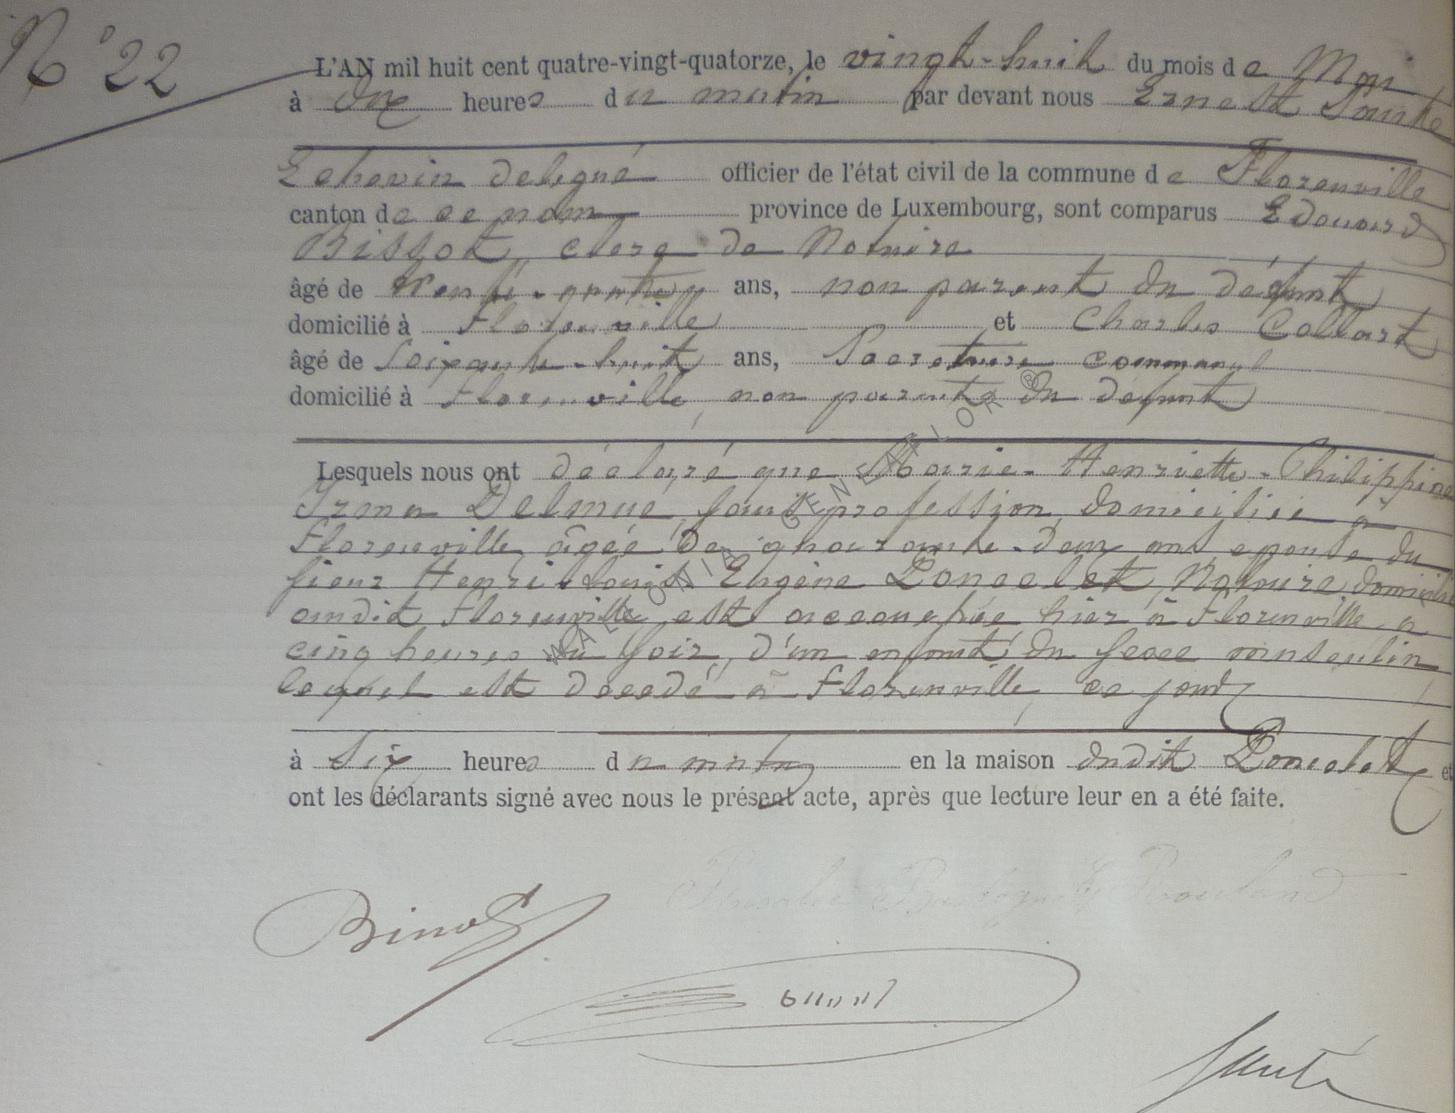 N° 22
L'AN mil huit cent quatre-vingt-quatorze, le vingt-huit du mois de Mai
à dix heures du matin par devant nous Ernest
Echevin delegué officier de l'état civil de la commune de Florenville
canton de ce nom province de Luxembourg, sont comparus Edouard
clerc de Notaire
âgé de trente-quatre ans, non parent du défunt
domicilié à Florenville et Charles Collart
âgé de soixante-huit ans, Secretaire communal
domicilié à Florenville, non parent du defunt
Lesquels nous ont déclaré que Marie-Henriette-Philippine
Irma Delmue, sans profession, domiciliée à
Florenville âgée de quarante-deux ans epouse du
sieur Henri-Louis Eugène Poncelet, Notaire domicilié
audit Florenville est accouchée hier à Florenville à
cinq heures du soir, d'un enfant du sexe masculin
lequel est decedé à Florenville, ce jour
à six heures du matin en la maison dudit Poncelet et
ont les déclarants signé avec nous le présent acte, après que lecture leur en a été faite.
WALLONIA GENEALOR